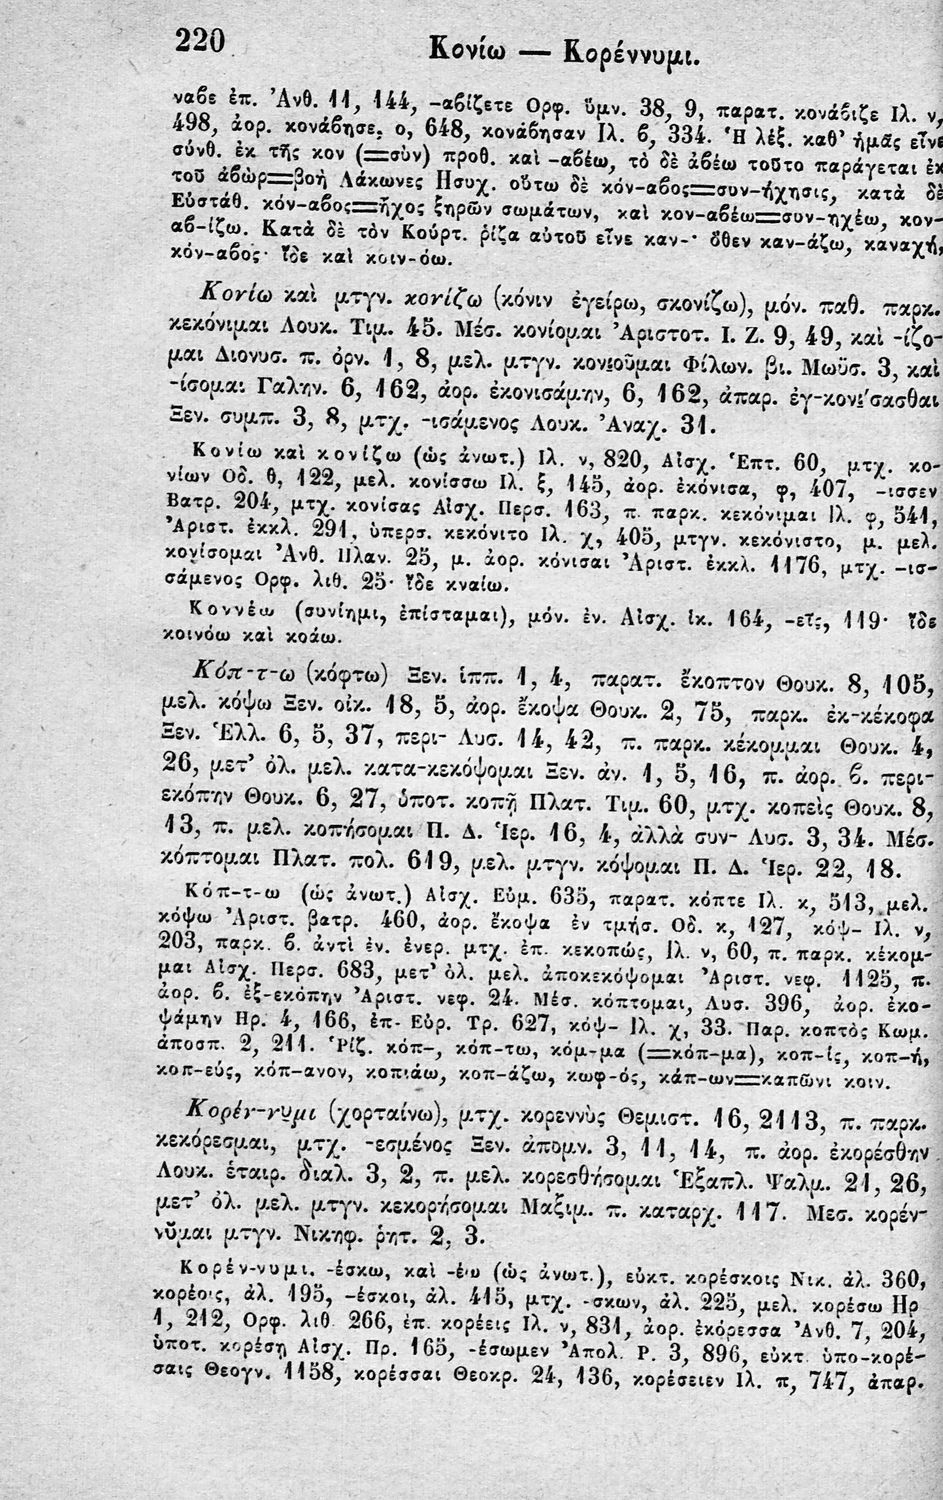 220
Κονίω — Κορέννυμι.
ναβε ἐπ. Ἀνθ. 11, 144, -αβίζετε Ορφ. ὕμν. 38, 9, παρατ. κονάβιζε Ιλ. ν,
498, ἀορ. κονάβησε, ο, 648, κονάβησαν Ιλ. β, 334. Ἡ λέξ. καθ’ ἡμᾶς εἶνε
σύνθ. ἐκ τῆς κον (=σὺν) προθ. καὶ -αβέω, τὸ δὲ ἀβέω τοῦτο παράγεται ἐκ
τοῦ ἀβώρ=βοὴ Λάκωνες Ησυχ. οὕτω δὲ κόν-αβος=συν-ήχησις, κατὰ δὲ
Εὐστάθ. κόν-αβος=ἦχος ξηρῶν σωμάτων, καὶ κον-αβέω=συν-ηχέω, κον-
αβ-ίζω. Κατὰ δὲ τὸν Κούρτ. ῥίζα αὐτοῦ εἶνε καν-· ὅθεν καν-άζω, καναχή,
κόν-αβος· ἴδε καὶ κοιν-όω.
Κονίω καὶ μτγν. κονίζω (κόνιν ἐγείρω, σκονίζω), μόν. παθ. παρκ.
κεκόνιμαι Λουκ. Τιμ. 45. Μέσ. κονίομαι Ἀριστοτ. Ι. Ζ. 9, 49, καὶ -ίζο-
μαι Διονυσ. π. ὀρν. 1, 8, μελ. μτγν. κονιοῦμαι Φίλων. βι. Μωϋσ. 3, καὶ
-ίσομαι Γαλην. 6, 162, ἀορ. ἐκονισάμην, 6, 162, ἀπαρ. ἐγ-κονίσασθαι
Ξεν. συμπ. 3, 8, μτχ. -ισάμενος Λουκ. Ἀναχ. 31.
Κονίω καὶ κονίζω (ὡς ἀνωτ.) Ιλ. ν, 820, Αἰσχ. Ἑπτ. 60, μτχ. κο-
νίων Οδ. θ, 122, μελ. κονίσσω Ιλ. ξ, 145, ἀορ. ἐκόνισα, φ, 407, -ισσεν
Βατρ. 204, μτχ. κονίσας Αἰσχ. Περσ. 163, π. παρκ. κεκόνιμαι Ιλ. φ, 541,
Ἀριστ. ἐκκλ. 291, ὑπερσ. κεκόνιτο Ιλ. χ, 405, μτγν. κεκόνιστο, μ. μελ.
κονίσομαι Ἀνθ. Πλαν. 25, μ. ἀορ. κόνισαι Ἀριστ. ἐκκλ. 1176, μτχ. -ισ-
σάμενος Ορφ. λιθ. 25· ἴδε κναίω.
Κοννέω (συνίημι, ἐπίσταμαι), μόν. ἐν. Αἰσχ. ἱκ. 164, -εῖς, 119· ἴδε
κοινόω καὶ κοάω.
Κόπ-τ-ω (κόφτω) Ξεν. ἱππ. 1, 4, παρατ. ἔκοπτον Θουκ. 8, 105,
μελ. κόψω Ξεν. οἰκ. 18, 5, ἀορ. ἔκοψα Θουκ. 2, 75, παρκ. ἐκ-κέκοφα
Ξεν. Ἑλλ. 6, 5, 37, περι- Λυσ. 14, 42, π. παρκ. κέκομμαι Θουκ. 4,
26, μετ’ ὀλ. μελ. κατα-κεκόψομαι Ξεν. ἀν. 1, 5, 16, π. ἀορ. β. περι-
εκόπην Θουκ. 6, 27, ὑποτ. κοπῇ Πλατ. Τιμ. 60, μτχ. κοπεὶς Θουκ. 8,
13, π. μελ. κοπήσομαι Π. Δ. Ἱερ. 16, 4, ἀλλὰ συν- Λυσ. 3, 34. Μέσ.
κόπτομαι Πλατ. πολ. 619, μελ. μτγν. κόψομαι Π. Δ. Ἱερ. 22, 18.
Κόπ-τ-ω (ὡς ἀνωτ.) Αἰσχ. Εὐμ. 635, παρατ. κόπτε Ιλ. κ, 513, μελ.
κόψω Ἀριστ. βατρ. 460, ἀορ. ἔκοψα ἐν τμήσ. Οδ. κ, 127, κόψ- Ιλ. ν,
203, παρκ. β. ἀντὶ ἐν. ἐνερ. μτχ. ἐπ. κεκοπώς, Ιλ. ν, 60, π. παρκ. κέκομ-
μαι Αἰσχ. Περσ. 683, μετ’ ὀλ. μελ. ἀποκεκόψομαι Ἀριστ. νεφ. 1125, π.
ἀορ. β. ἐξ-εκόπην Ἀριστ. νεφ. 24. Μέσ. κόπτομαι, Λυσ. 396, ἀορ. ἐκο-
ψάμην Ηρ. 4, 166, ἐπ. Εὐρ. Τρ. 627, κόψ- Ιλ. χ, 33. Παρ. κοπτὸς Κωμ.
ἀποσπ. 2, 211. Ῥίζ. κόπ-, κόπ-τω, κόμ-μα (=κόπ-μα), κοπ-ίς, κοπ-ή,
κοπ-εύς, κόπ-ανον, κοπιάω, κοπ-άζω, κωφ-ός, κάπ-ων=καπῶνι κοιν.
Κορέν-νυμι (χορταίνω), μτχ. κορεννὺς Θεμιστ. 16, 2113, π. παρκ.
κεκόρεσμαι, μτχ. -εσμένος Ξεν. ἀπομν. 3, 11, 14, π. ἀορ. ἐκορέσθην
Λουκ. ἑταιρ. διαλ. 3, 2, π. μελ. κορεσθήσομαι Ἑξαπλ. Ψαλμ. 21, 26,
μετ’ ὀλ. μελ. μτγν. κεκορήσομαι Μαξιμ. π. καταρχ. 117. Μεσ. κορέν-
νῦμαι μτγν. Νικηφ. ῥητ. 2, 3.
Κορέν-νυμι, -έσκω, καὶ -έω (ὡς ἀνωτ.), εὐκτ. κορέσκοις Νικ. ἀλ. 360,
κορέοις, ἀλ. 195, -έσκοι, ἀλ. 415, μτχ. -σκων, ἀλ. 225, μελ. κορέσω Ηρ
1, 212, Ορφ. λιθ. 266, ἐπ. κορέεις Ιλ. ν, 831, ἀορ. ἐκόρεσσα Ἀνθ. 7, 204,
ὑποτ. κορέσῃ Αἰσχ. Πρ. 165, -έσωμεν Ἀπολ. Ρ. 3, 896, εὐκτ. ὑπο-κορέ-
σαις Θεογν. 1158, κορέσσαι Θεοκρ. 24, 136, κορέσειεν Ιλ. π, 747, ἀπαρ.